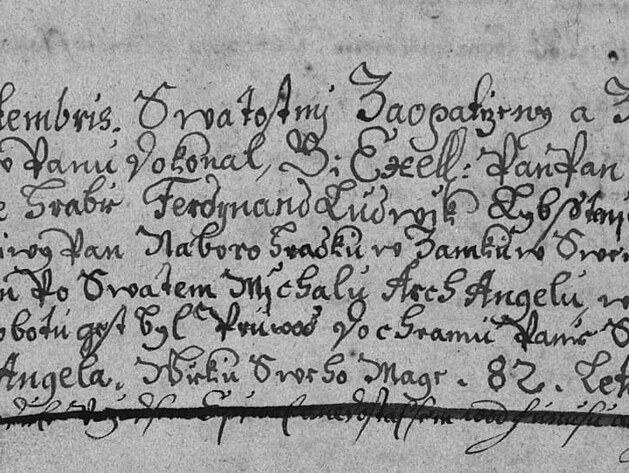 tembris. Swatostmj Zaopatrženy a
w Panu Dokonal, G: Excell: Pan Pan
e Hrabie Ferdynand Ludwik Lybsstey
iwy Pan Naborohradku w Zamku w Swem
u Po Swatem Mychalu Arch Angelu, w
obotu gest byl Pruwod do chramu Panie S
Angela. Wieku Sweho Mage. 82. Leth